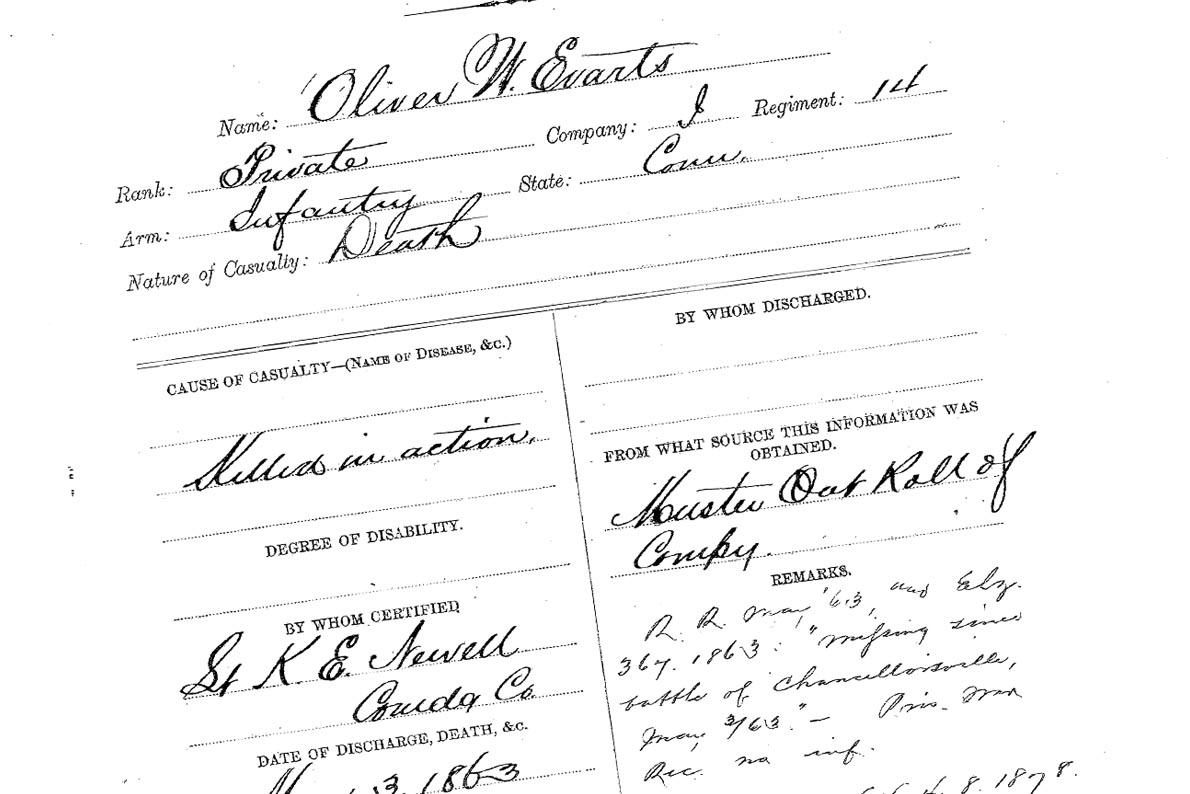 Name: Oliver W. Evarts
Rank: Private Company: I Regiment: 14
Arm: Infantry State: Conn.
Nature of Casualty: Death
CAUSE OF CASUALTY—(NAME OF DISEASE, &C.)
Killed in action.
DEGREE OF DISABILITY.
BY WHOM CERTIFIED
Lt K. E. Newell
Comdg Co.
DATE OF DISCHARGE, DEATH, &c.
3, 1863
BY WHOM DISCHARGED.
FROM WHAT SOURCE THIS INFORMATION WAS
OBTAINED.
Muster Out Roll of
Compy.
REMARKS.
R. R. May, '63, and
1863: "missing since
battle of Chancellorsville,
May 3/63." — Pris. War
Rec. no inf.
8. 1878.